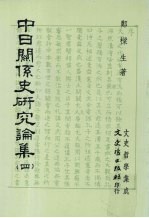 鄭樑生著
中日關係史研究論集(四)
文史哲學集成
文史哲出版社印行